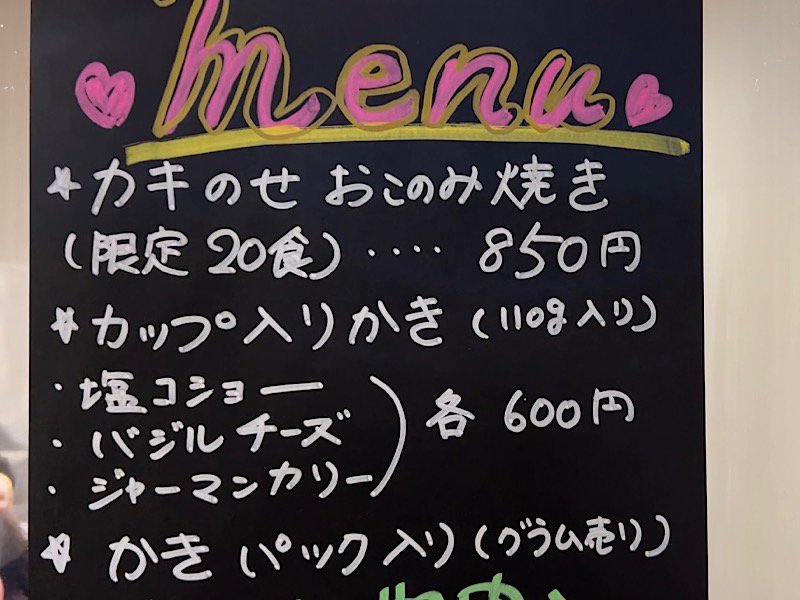 menu
☆カキのせ おこのみ焼き
(限定20食)‥‥850円
☆カップ入りかき(110g入り)
・塩コショー
・バジルチーズ
・ジャーマンカリー
各 600円
☆かき パック入り(グラム売り)